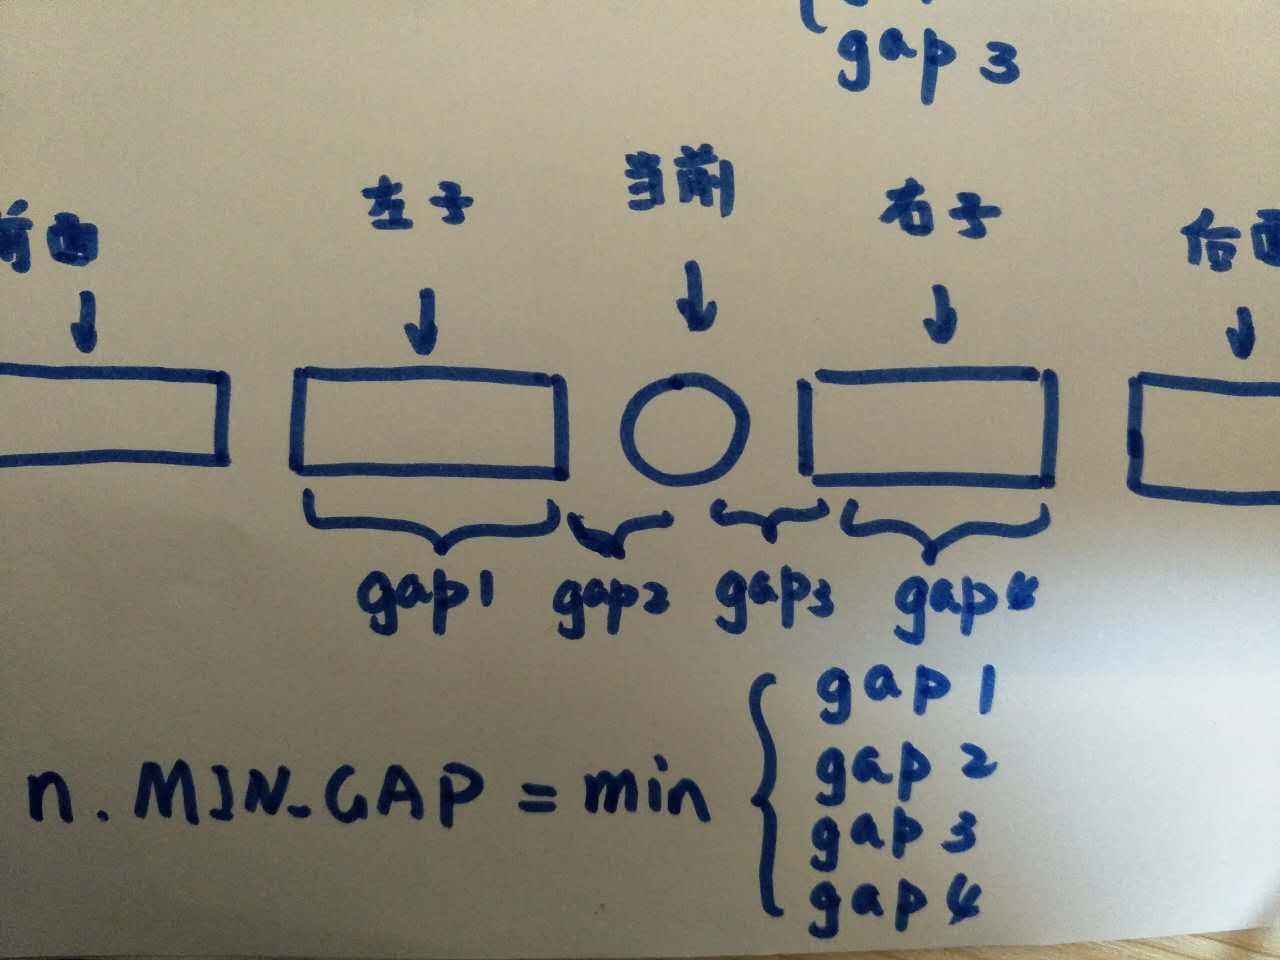 gap 3
当前
左子
右子
前面
后面
gap1 gap2 gap3 gap4
n. MIN_GAP = min
gap 1
gap 2
gap 3
gap 4